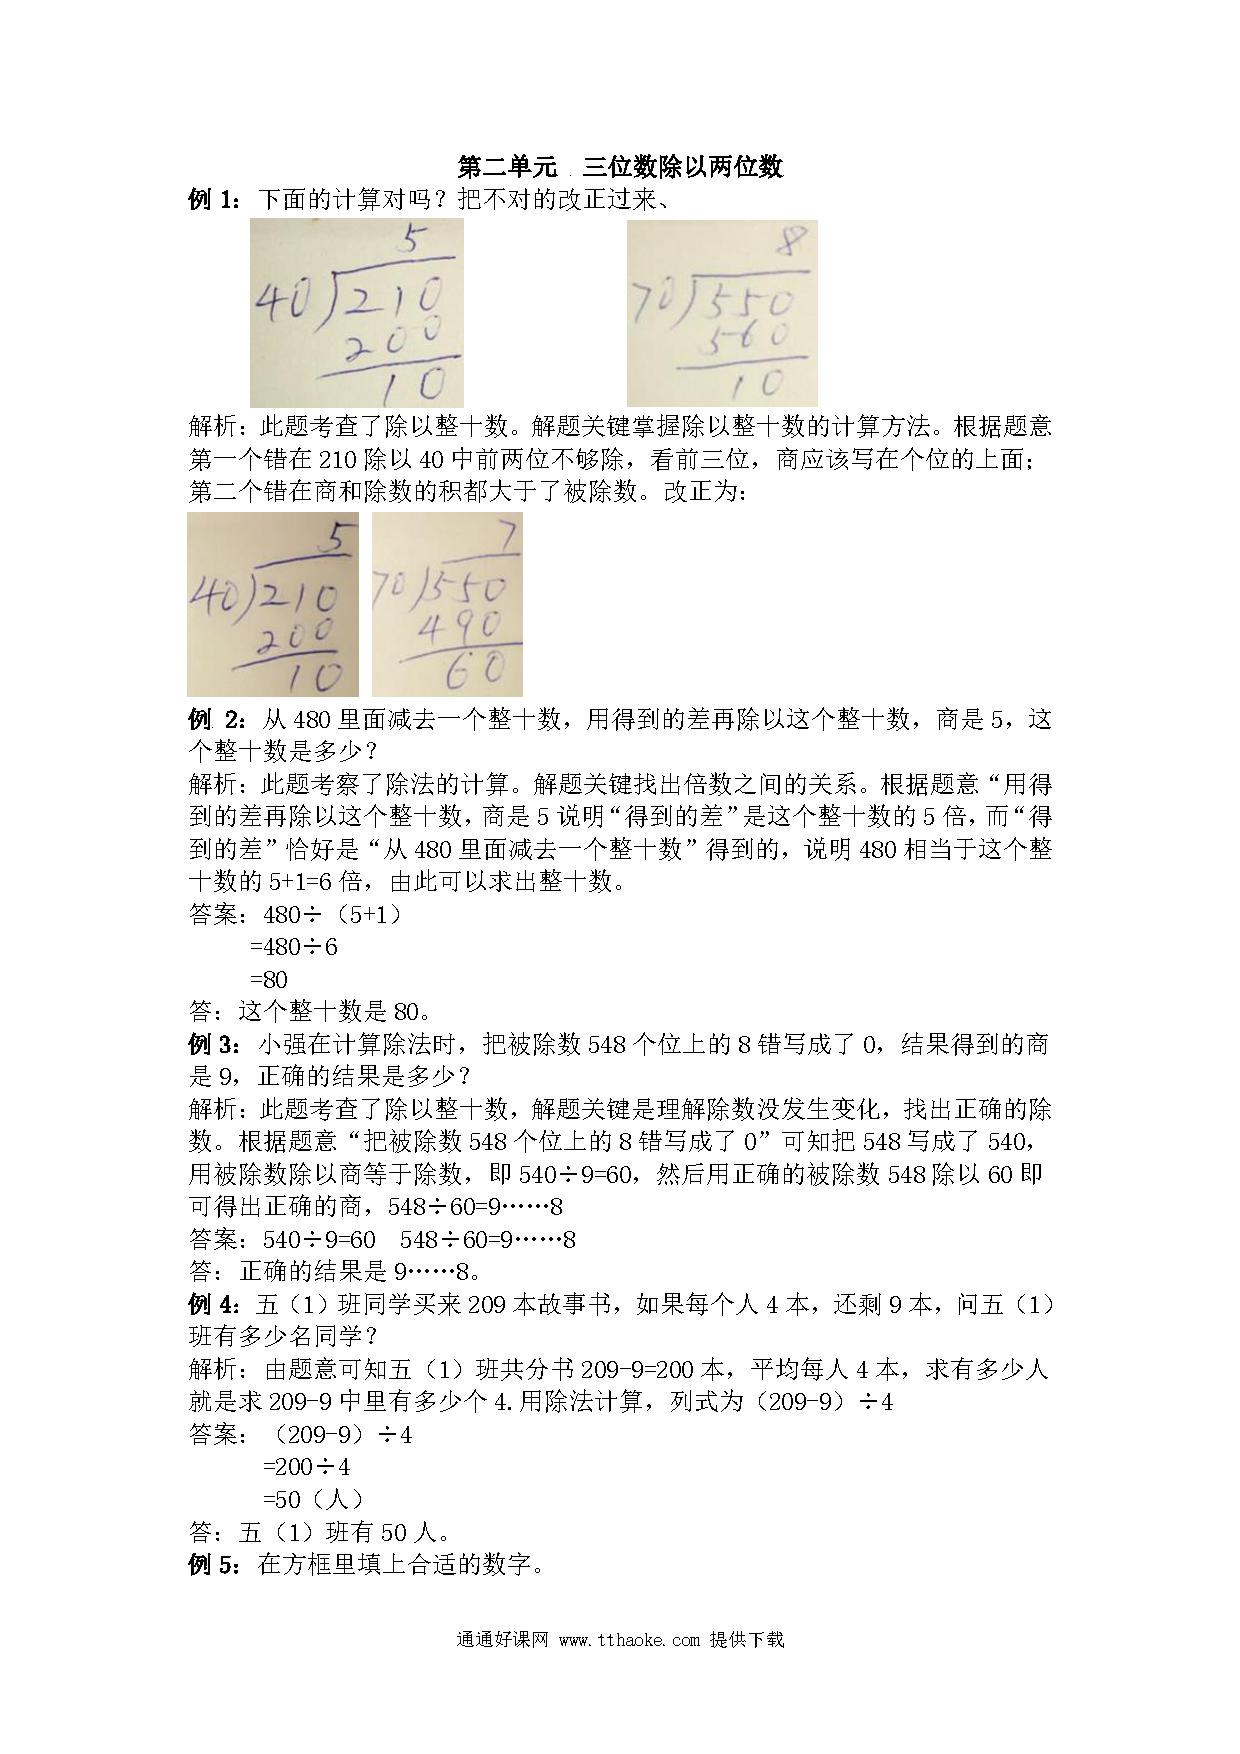 第二单元 三位数除以两位数
例 1：下面的计算对吗？把不对的改正过来、
5
40)210
200
10
8
70)550
560
10
解析：此题考查了除以整十数。解题关键掌握除以整十数的计算方法。根据题意
第一个错在 210 除以 40 中前两位不够除，看前三位，商应该写在个位的上面；
第二个错在商和除数的积都大于了被除数。改正为：
5
40)210
200
10
7
70)550
490
60
例 2：从 480 里面减去一个整十数，用得到的差再除以这个整十数，商是 5，这
个整十数是多少？
解析：此题考察了除法的计算。解题关键找出倍数之间的关系。根据题意“用得
到的差再除以这个整十数，商是 5 说明“得到的差”是这个整十数的 5 倍，而“得
到的差”恰好是“从 480 里面减去一个整十数”得到的，说明 480 相当于这个整
十数的 5+1=6 倍，由此可以求出整十数。
答案：480÷（5+1）
=480÷6
=80
答：这个整十数是 80。
例 3：小强在计算除法时，把被除数 548 个位上的 8 错写成了 0，结果得到的商
是 9，正确的结果是多少？
解析：此题考查了除以整十数，解题关键是理解除数没发生变化，找出正确的除
数。根据题意“把被除数 548 个位上的 8 错写成了 0”可知把 548 写成了 540，
用被除数除以商等于除数，即 540÷9=60，然后用正确的被除数 548 除以 60 即
可得出正确的商，548÷60=9……8
答案：540÷9=60 548÷60=9……8
答：正确的结果是 9……8。
例 4：五（1）班同学买来 209 本故事书，如果每个人 4 本，还剩 9 本，问五（1）
班有多少名同学？
解析：由题意可知五（1）班共分书 209-9=200 本，平均每人 4 本，求有多少人
就是求 209-9 中里有多少个 4.用除法计算，列式为（209-9）÷4
答案：（209-9）÷4
=200÷4
=50（人）
答：五（1）班有 50 人。
例 5：在方框里填上合适的数字。
通通好课网 www.tthaoke.com 提供下载